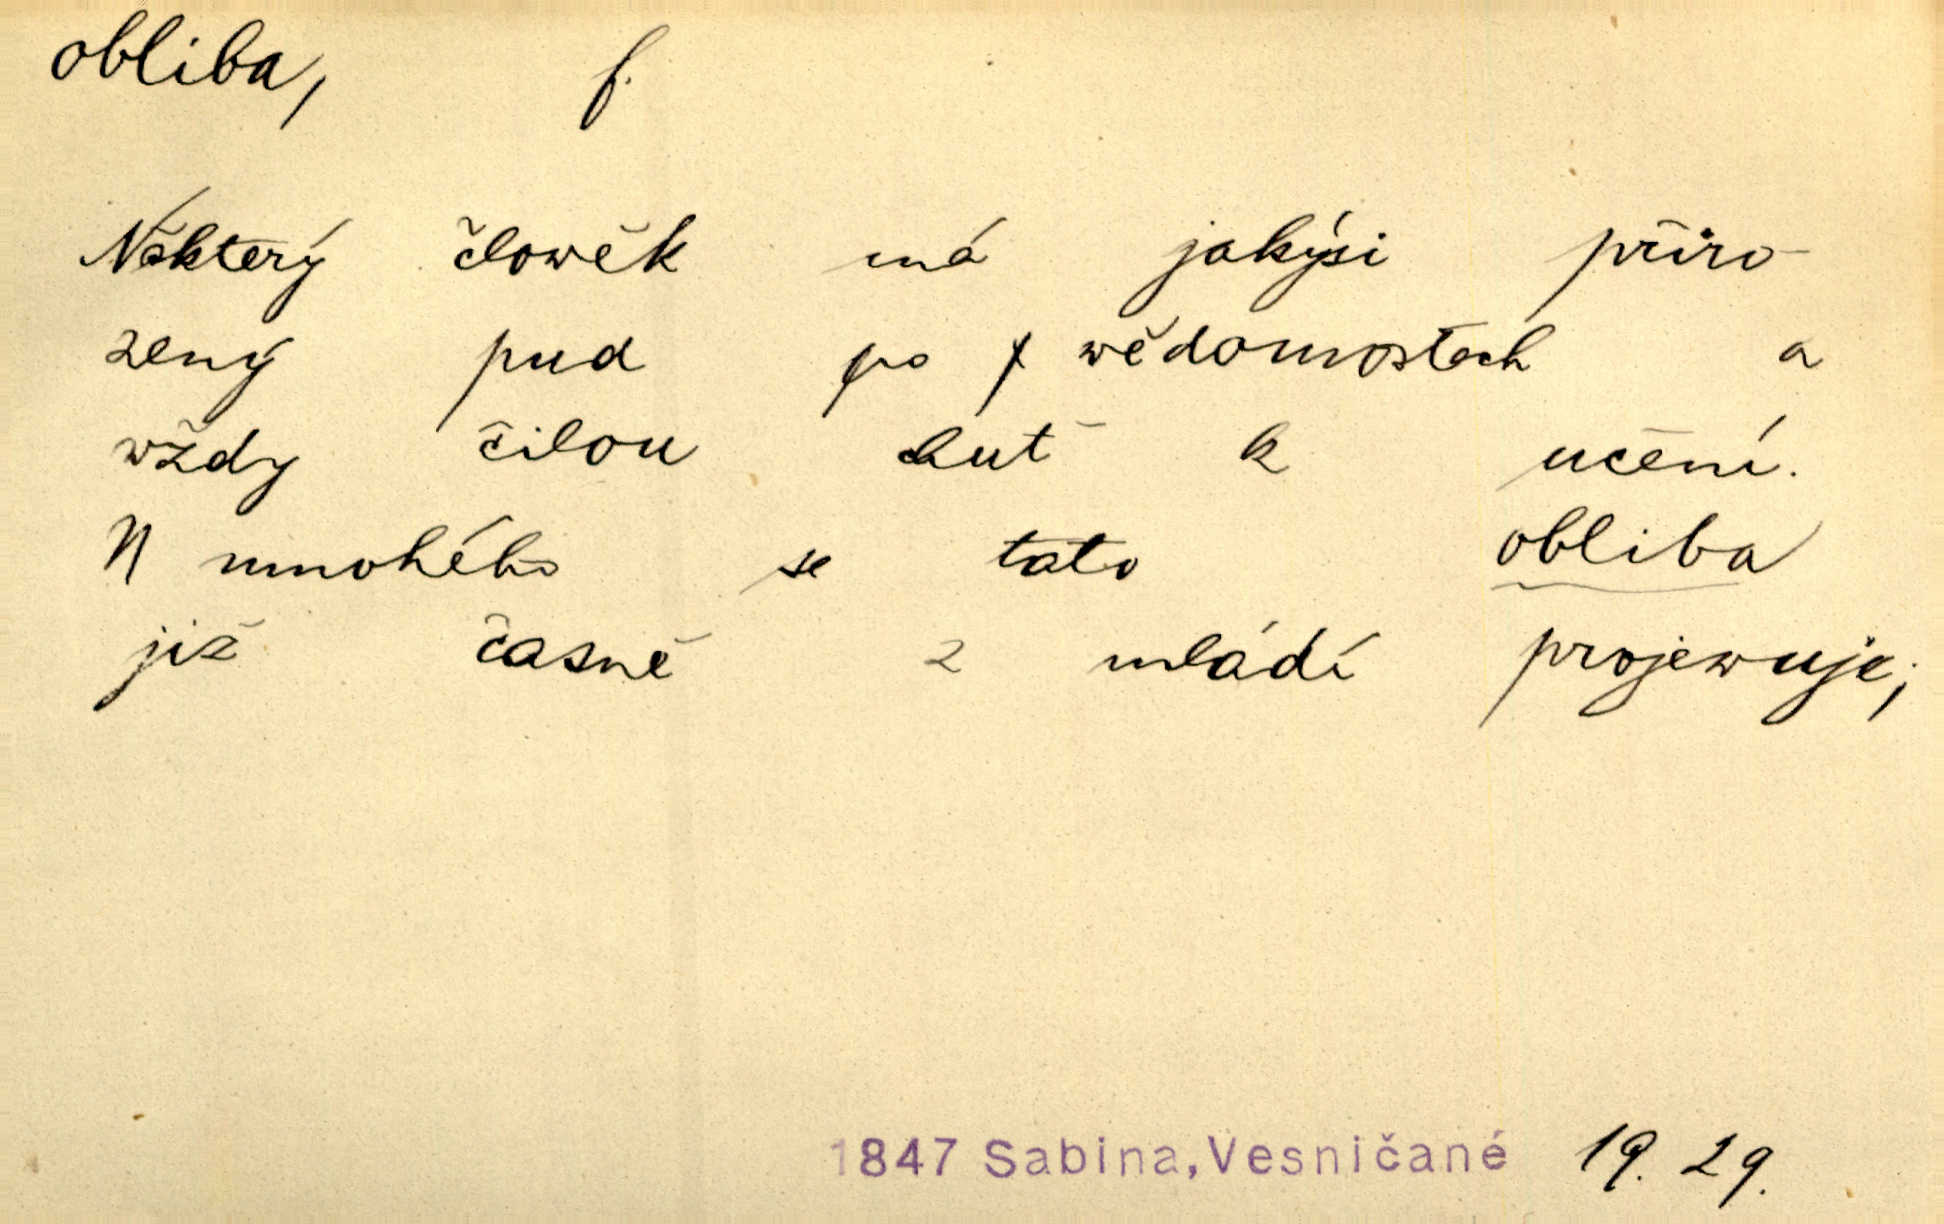 obliba, f.
Některý člowěk má jakýsi přiro-
zený pud po wědomostech a
wždy čilou chuť k učení.
U mnohého se tato obliba
již časně z mládí projewuje;
1847 Sabina, Vesničané 19. 29.